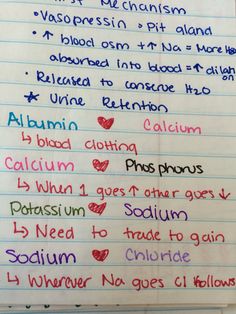 Mechanism
• Vasopressin → Pit gland
• ↑ blood osm + ↑ Na = More H₂
absorbed into blood = ↑ dilat
• Released to conserve H₂O
☆ Urine Retention
Albumin ♥ Calcium
↳ blood clotting
Calcium ♥ Phosphorus
↳ When 1 goes ↑ other goes ↓
Potassium ♥ Sodium
↳ Need to trade to gain
Sodium ♥ Chloride
↳ Wherever Na goes Cl follows